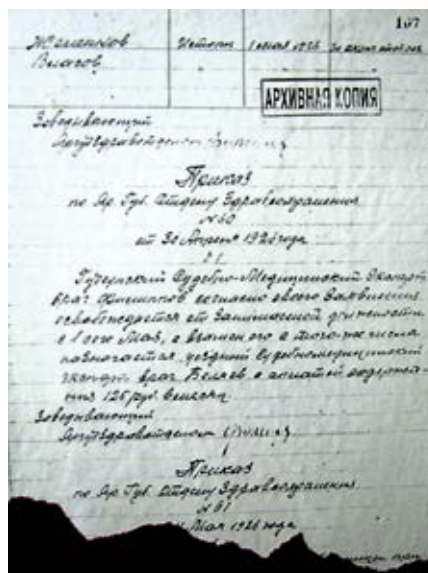 107
Истопн 1 мая 1926
Власов
АРХИВНАЯ КОПИЯ
Заведывающий
Приказ
по Яр. Губ. Отделу Здравоохранения
№ 60
от 30 Апреля 1926 года
§ 1
Губернский Судебно-Медицинский Эксперт
врач согласно своего заявления
освобождается от занимаемой должности
с 1 сего Мая, а взамен его с того-же числа
назначается уездный Судебномедицинский
эксперт врач Беляев с оплатой содержа-
ния 125 руб. в месяц.
Заведывающий
Приказ
по Яр. Губ. Отделу Здравоохранения
№ 61
Мая 1926 года